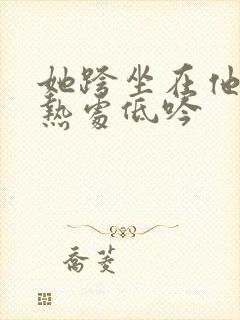 她跨坐在他
熱處低吟
喬菱